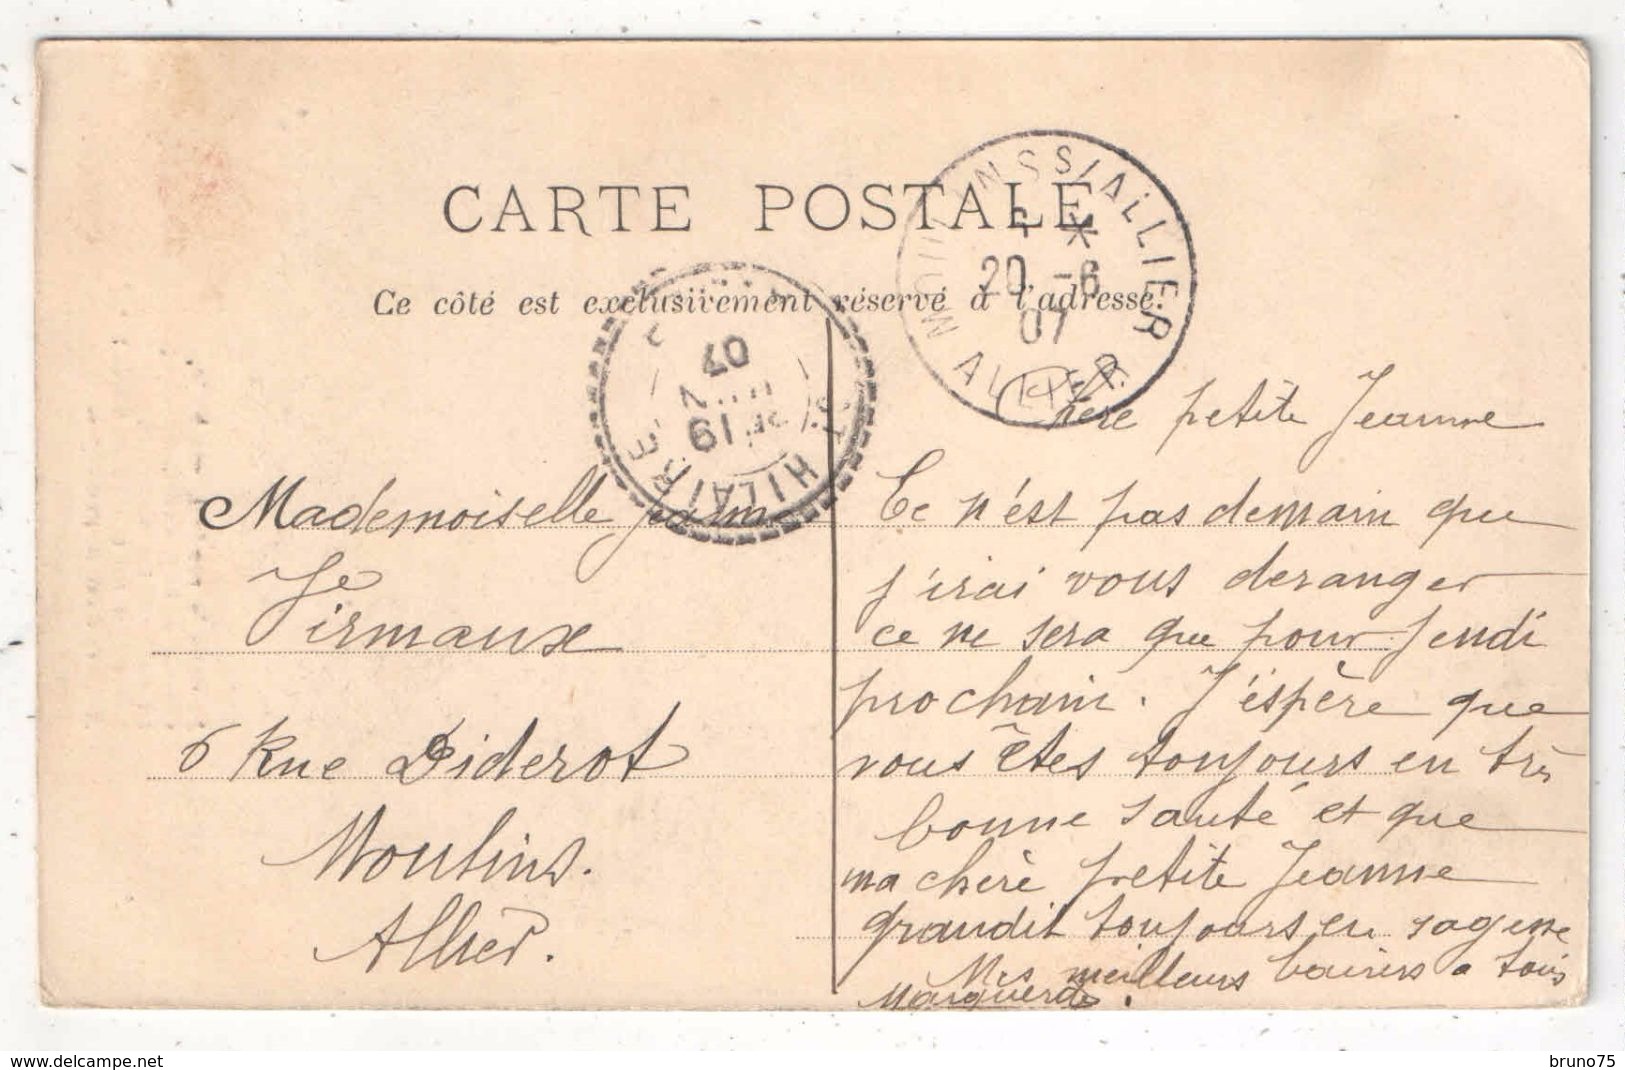 CARTE POSTALE
Ce côté est exclusivement réservé à l'adresse.
MOULINS S/ALLIER
*
20 -6
07
ALLIER
ST HILAIRE
19
07
Mademoiselle Jeanne
Firmaux
6 Rue Diderot
Moulins.
Allier.
Chère petite Jeanne
Ce n'est pas demain que
j'irai vous deranger
ce ne sera que pour jeudi
prochain. J'espère que
vous êtes toujours en très
bonne santé et que
ma chère petite Jeanne
grandit toujours en sagesse
Mes meilleurs baisers a tous
Marguerite.
www.delcampe.net
bruno75